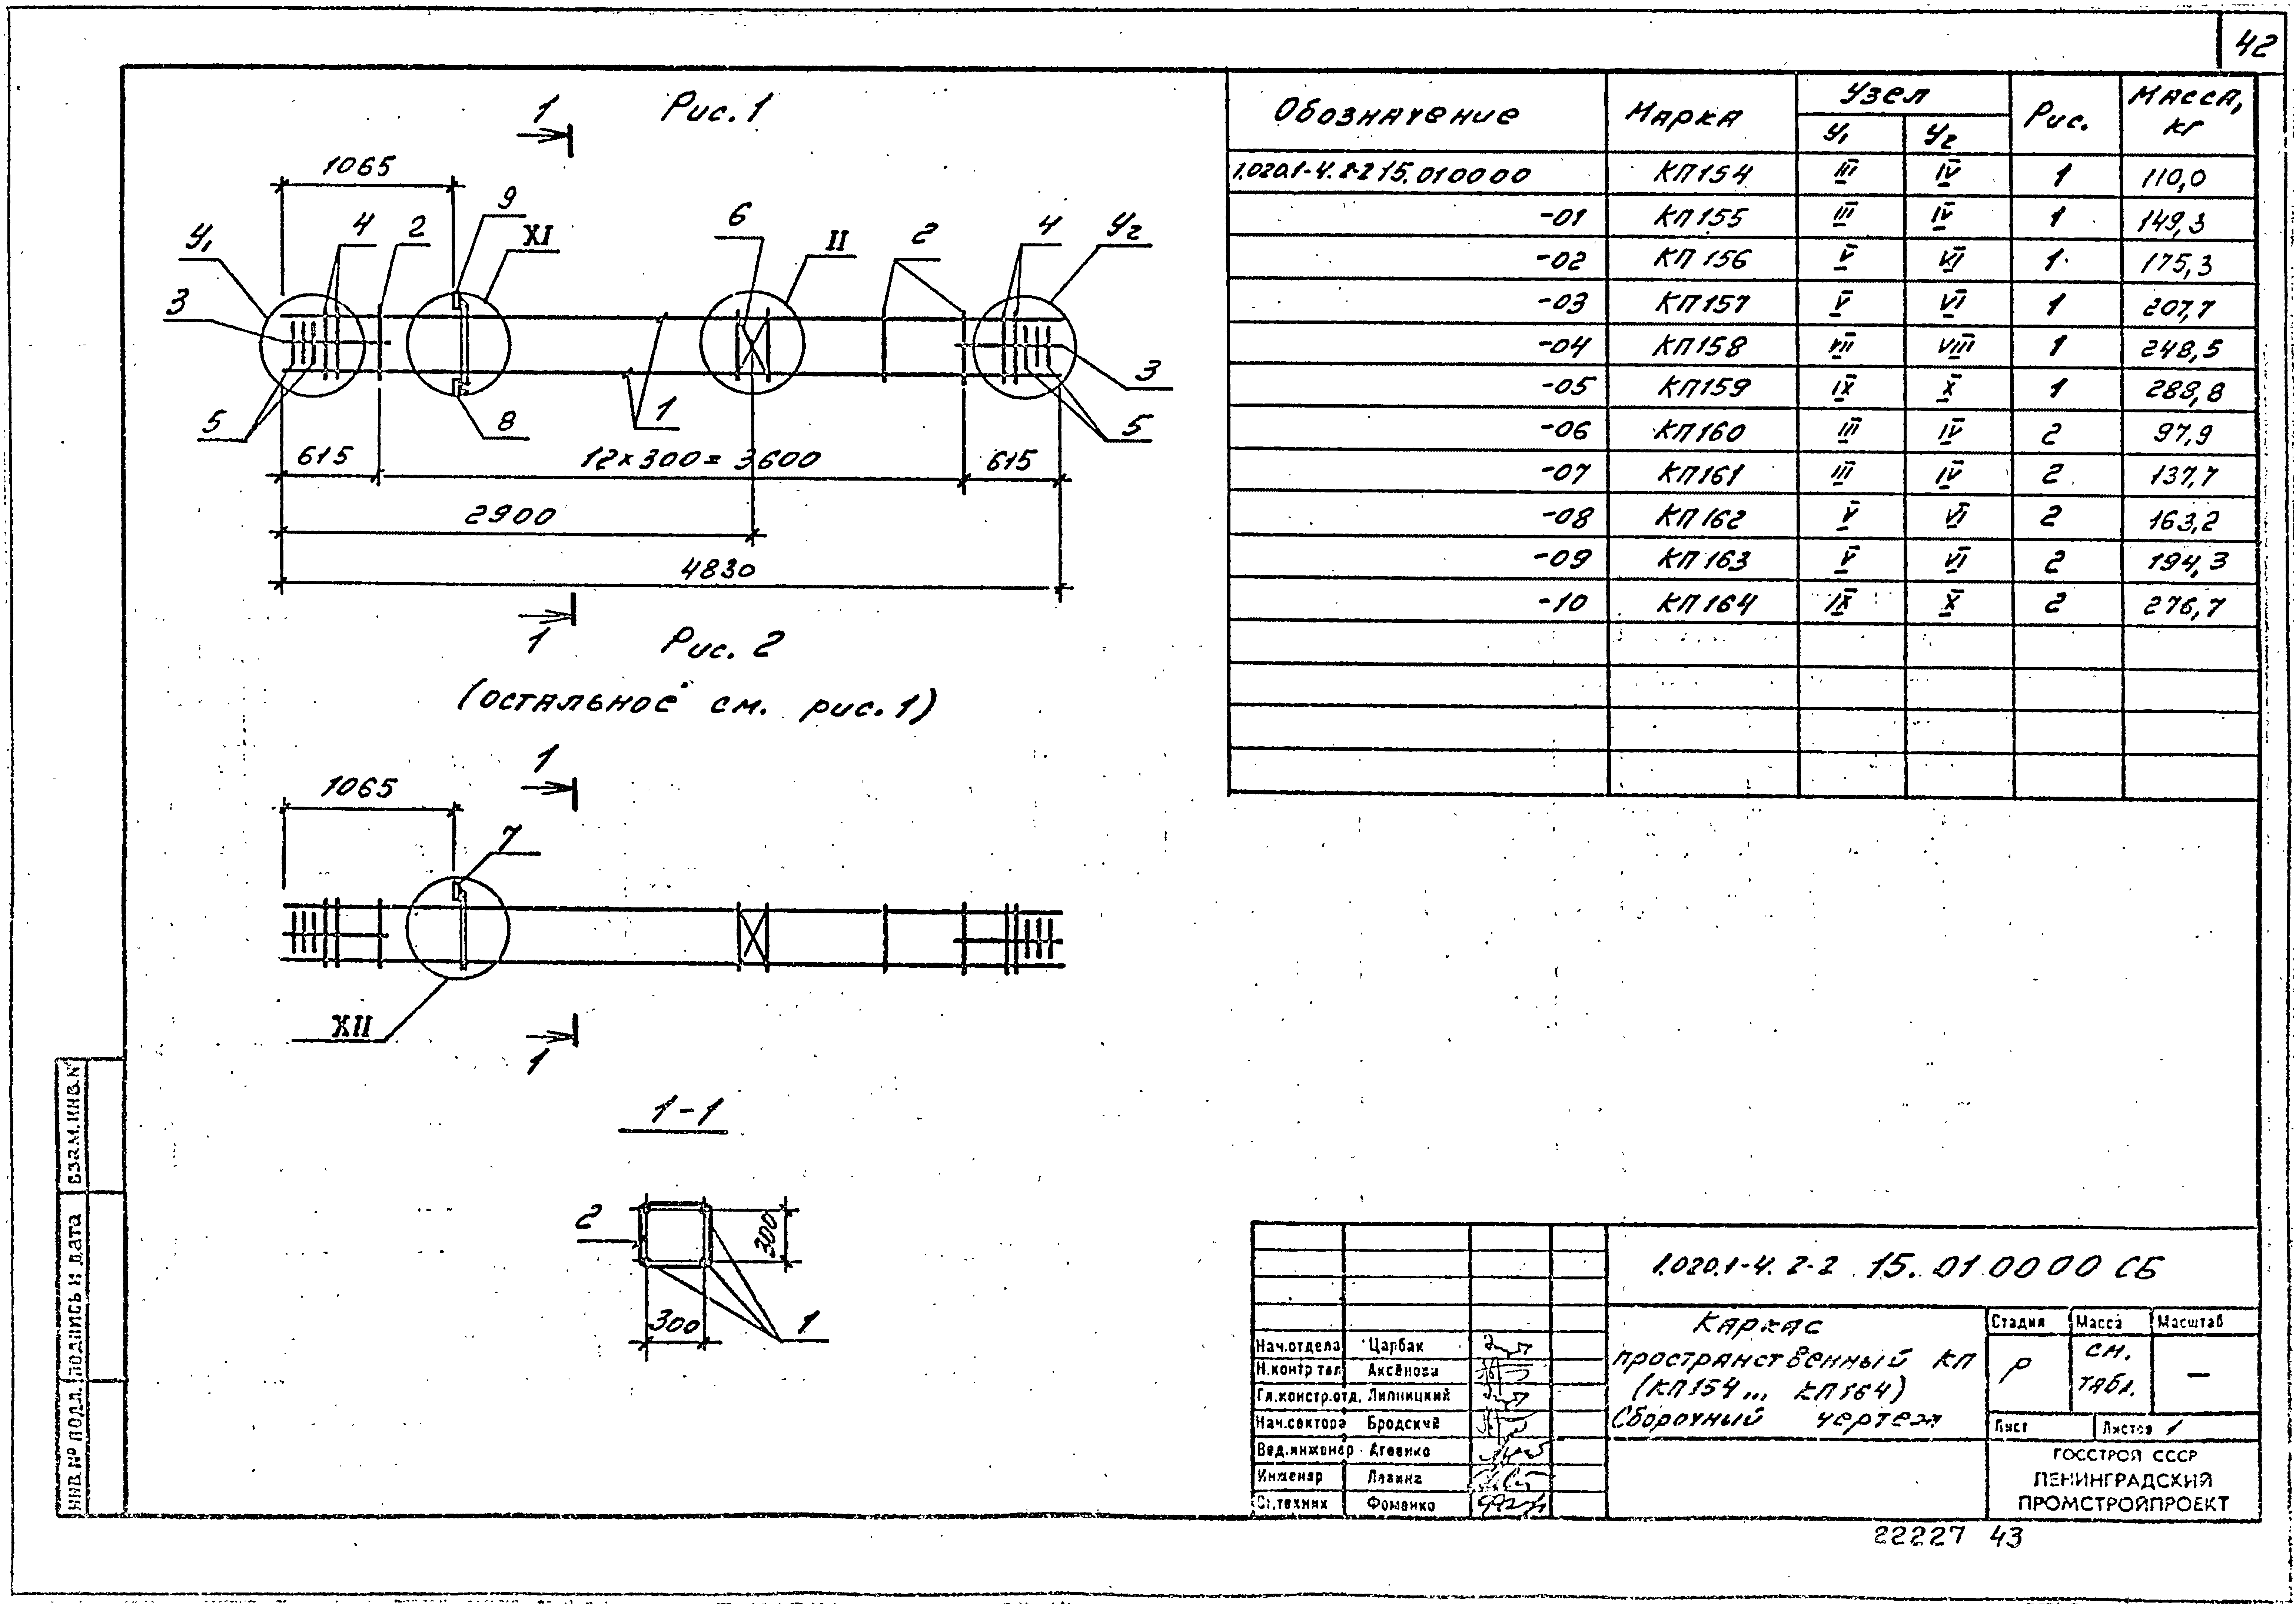 42
Рис. 1
1
1065
9
XI
4
2
6
II
2
4
У₁
У₂
3
3
5
8
1
5
615
12×300=3600
615
2900
4830
1
Рис. 2
(остальное см. рис. 1)
1
1065
7
XII
1
1-1
2
300
300
1
Обозначение Марка Узел Рис. Масса, кг
У₁ У₂
1.020.1-4. 2-2 15.010000 КП154 III IV 1 110,0
-01 КП155 III IV 1 149,3
-02 КП156 V VI 1 175,3
-03 КП157 V VI 1 207,7
-04 КП158 VII VIII 1 248,5
-05 КП159 IX X 1 288,8
-06 КП160 III IV 2 97,9
-07 КП161 III IV 2 137,7
-08 КП162 V VI 2 163,2
-09 КП163 V VI 2 194,3
-10 КП164 IX X 2 276,7
1.020.1-4. 2-2 15.010000 СБ
Нач.отдела Царбак
Н.контртал Аксёнова
Гл.констр.отд. Липницкий
Нач.сектора Бродский
Вед.инженер Агеенко
Инженер
Ст.техник Фоменко
Каркас
пространственный КП
(КП154... КП164)
Сборочный чертеж
Стадия Масса Масштаб
Р см. табл. —
Лист Листов 1
ГОССТРОЙ СССР
ЛЕНИНГРАДСКИЙ
ПРОМСТРОЙПРОЕКТ
ИНВ.№ ПОДЛ. ПОДПИСЬ И ДАТА ВЗАМ.ИНВ.№
22227 43